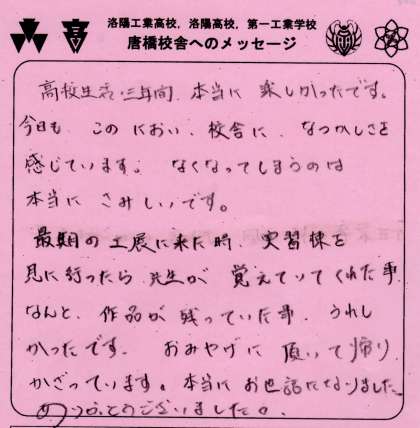 洛陽工業高校, 洛陽高校, 第一工業学校
唐橋校舎へのメッセージ
高校生活三年間、本当に楽しかったです。
今日も、このにおい、校舎に、なつかしさを
感じています。なくなってしまうのは
本当にさみしいです。
最期の工展に来た時、実習棟を
見に行ったら、先生が覚えていてくれた事、
なんと、作品が残っていた事、うれし
かったです。おみやげに頂いて帰り
かざっています。本当にお世話になりました
ありがとうございました。